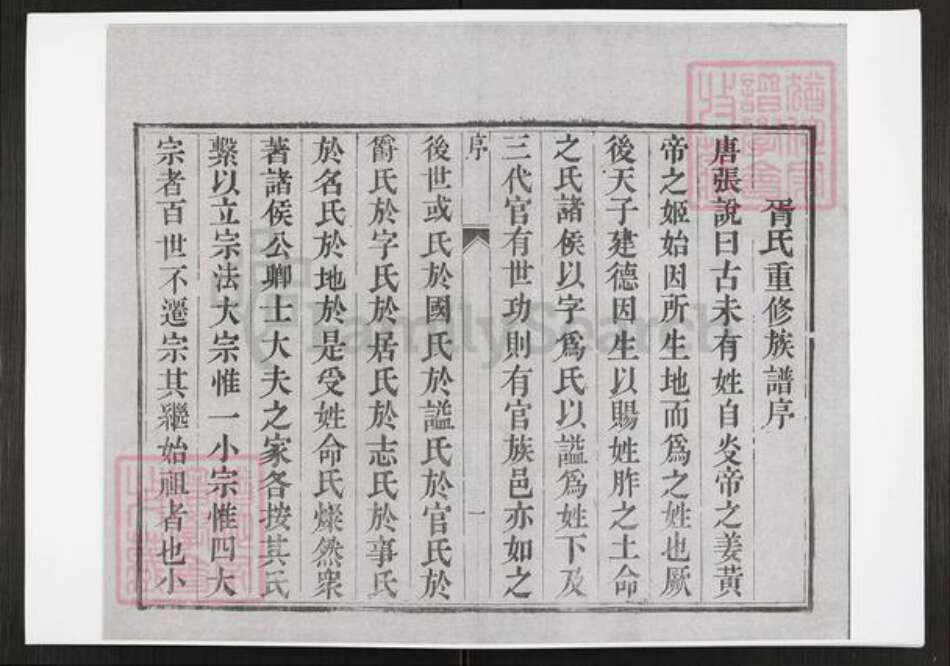 胥氏重修族譜序
唐張說曰古未有姓自炎帝之姜黃
帝之姬始因所生地而爲之姓也厥
後天子建德因生以賜姓胙之土命
之氏諸侯以字爲氏以謚爲姓下及
三代官有世功則有官族邑亦如之
序 一
後世或氏於國氏於謚氏於官氏於
爵氏於字氏於居氏於志氏於事氏
於名氏於地於是受姓命氏燦然衆
著諸侯公卿士大夫之家各按其氏
繫以立宗法大宗惟一小宗惟四大
宗者百世不遷宗其繼始祖者也小
FamilySearch